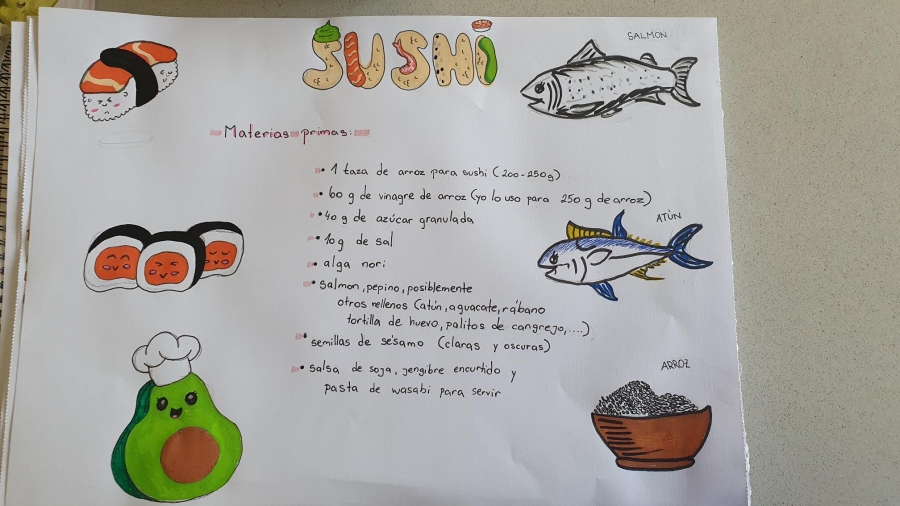 SUSHi
SALMON
Materias primas:
• 1 taza de arroz para sushi (200-250g)
• 60 g de vinagre de arroz (yo lo uso para 250 g de arroz)
• 40 g de azúcar granulada
ATÚN
• 10g de sal
• alga nori
• salmon, pepino, posiblemente
otros rellenos (atún, aguacate, rábano
tortilla de huevo, palitos de cangrejo,....)
• semillas de sésamo (claras y oscuras)
ARROZ
• salsa de soja, jengibre encurtido y
pasta de wasabi para servir